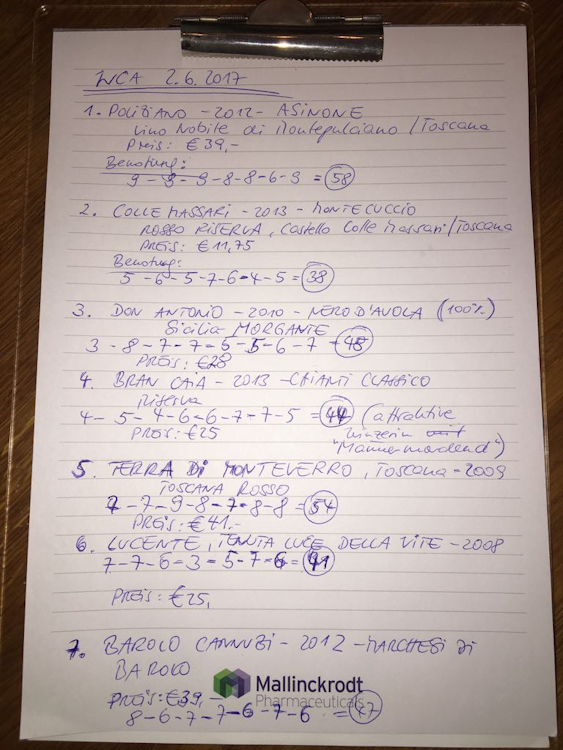 WCA 2.6.2017
1. POLIZIANO - 2012 - ASINONE
Vino Nobile di Montepulciano / Toscana
Preis: € 39,-
Benotung:
9 - 8 - 9 - 8 - 8 - 6 - 9 = 58
2. COLLE MASSARI - 2013 - MONTECUCCIO
ROSSO RISERVA, Castello Colle Massari/Toscana
PREIS: € 11,75
Benotung:
5 - 6 - 5 - 7 - 6 - 4 - 5 = 38
3. DON ANTONIO - 2010 - NERO D'AVOLA (100%)
Sicilia MORGANTE
3 - 8 - 7 - 7 - 5 - 5 - 6 - 7 = 48
PREIS: €28
4. BRAN CAIA - 2013 - CHIANTI CLASSICO
Riserva
4 - 5 - 4 - 6 - 6 - 7 - 7 - 5 = 44 (attraktive
PREIS: €25 Winzerin
"Männermordend")
5. TERRA DI MONTEVERRO, TOSCANA - 2009
TOSCANA ROSSO
7 - 7 - 9 - 8 - 7 - 8 - 8 = 54
PREIS: € 41.-
6. LUCENTE, TENUTA LUCE DELLA VITE - 2008
7 - 7 - 6 - 3 - 5 - 7 - 6 = 41
PREIS: €25,
7. BAROLO CANNUBI - 2012 - MARCHESI DI
BAROLO
Mallinckrodt
Pharmaceuticals
PREIS: €39,-
8 - 6 - 7 - 7 - 6 - 7 - 6 = 47